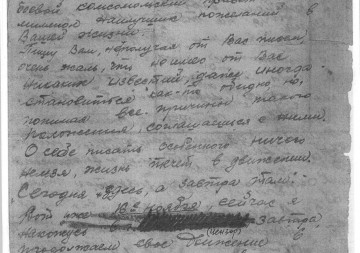 боевой комсомольский привет
миллион наилучших пожеланий в
Вашей жизни.
Пишу Вам, не получая от Вас писем,
очень жаль, что но шло от Вас
никаких известий, даже иногда
становиться как-то обидно, но
понимая все причины такого
положения, соглашаешься с ними.
О себе писать особенного ничего
нельзя, жизнь течёт в движении.
Сегодня здесь, а завтра там.
Вот уже 16е ноября, сейчас я
нахожусь в завтра
(Венгер)
продолжаем свое движение в